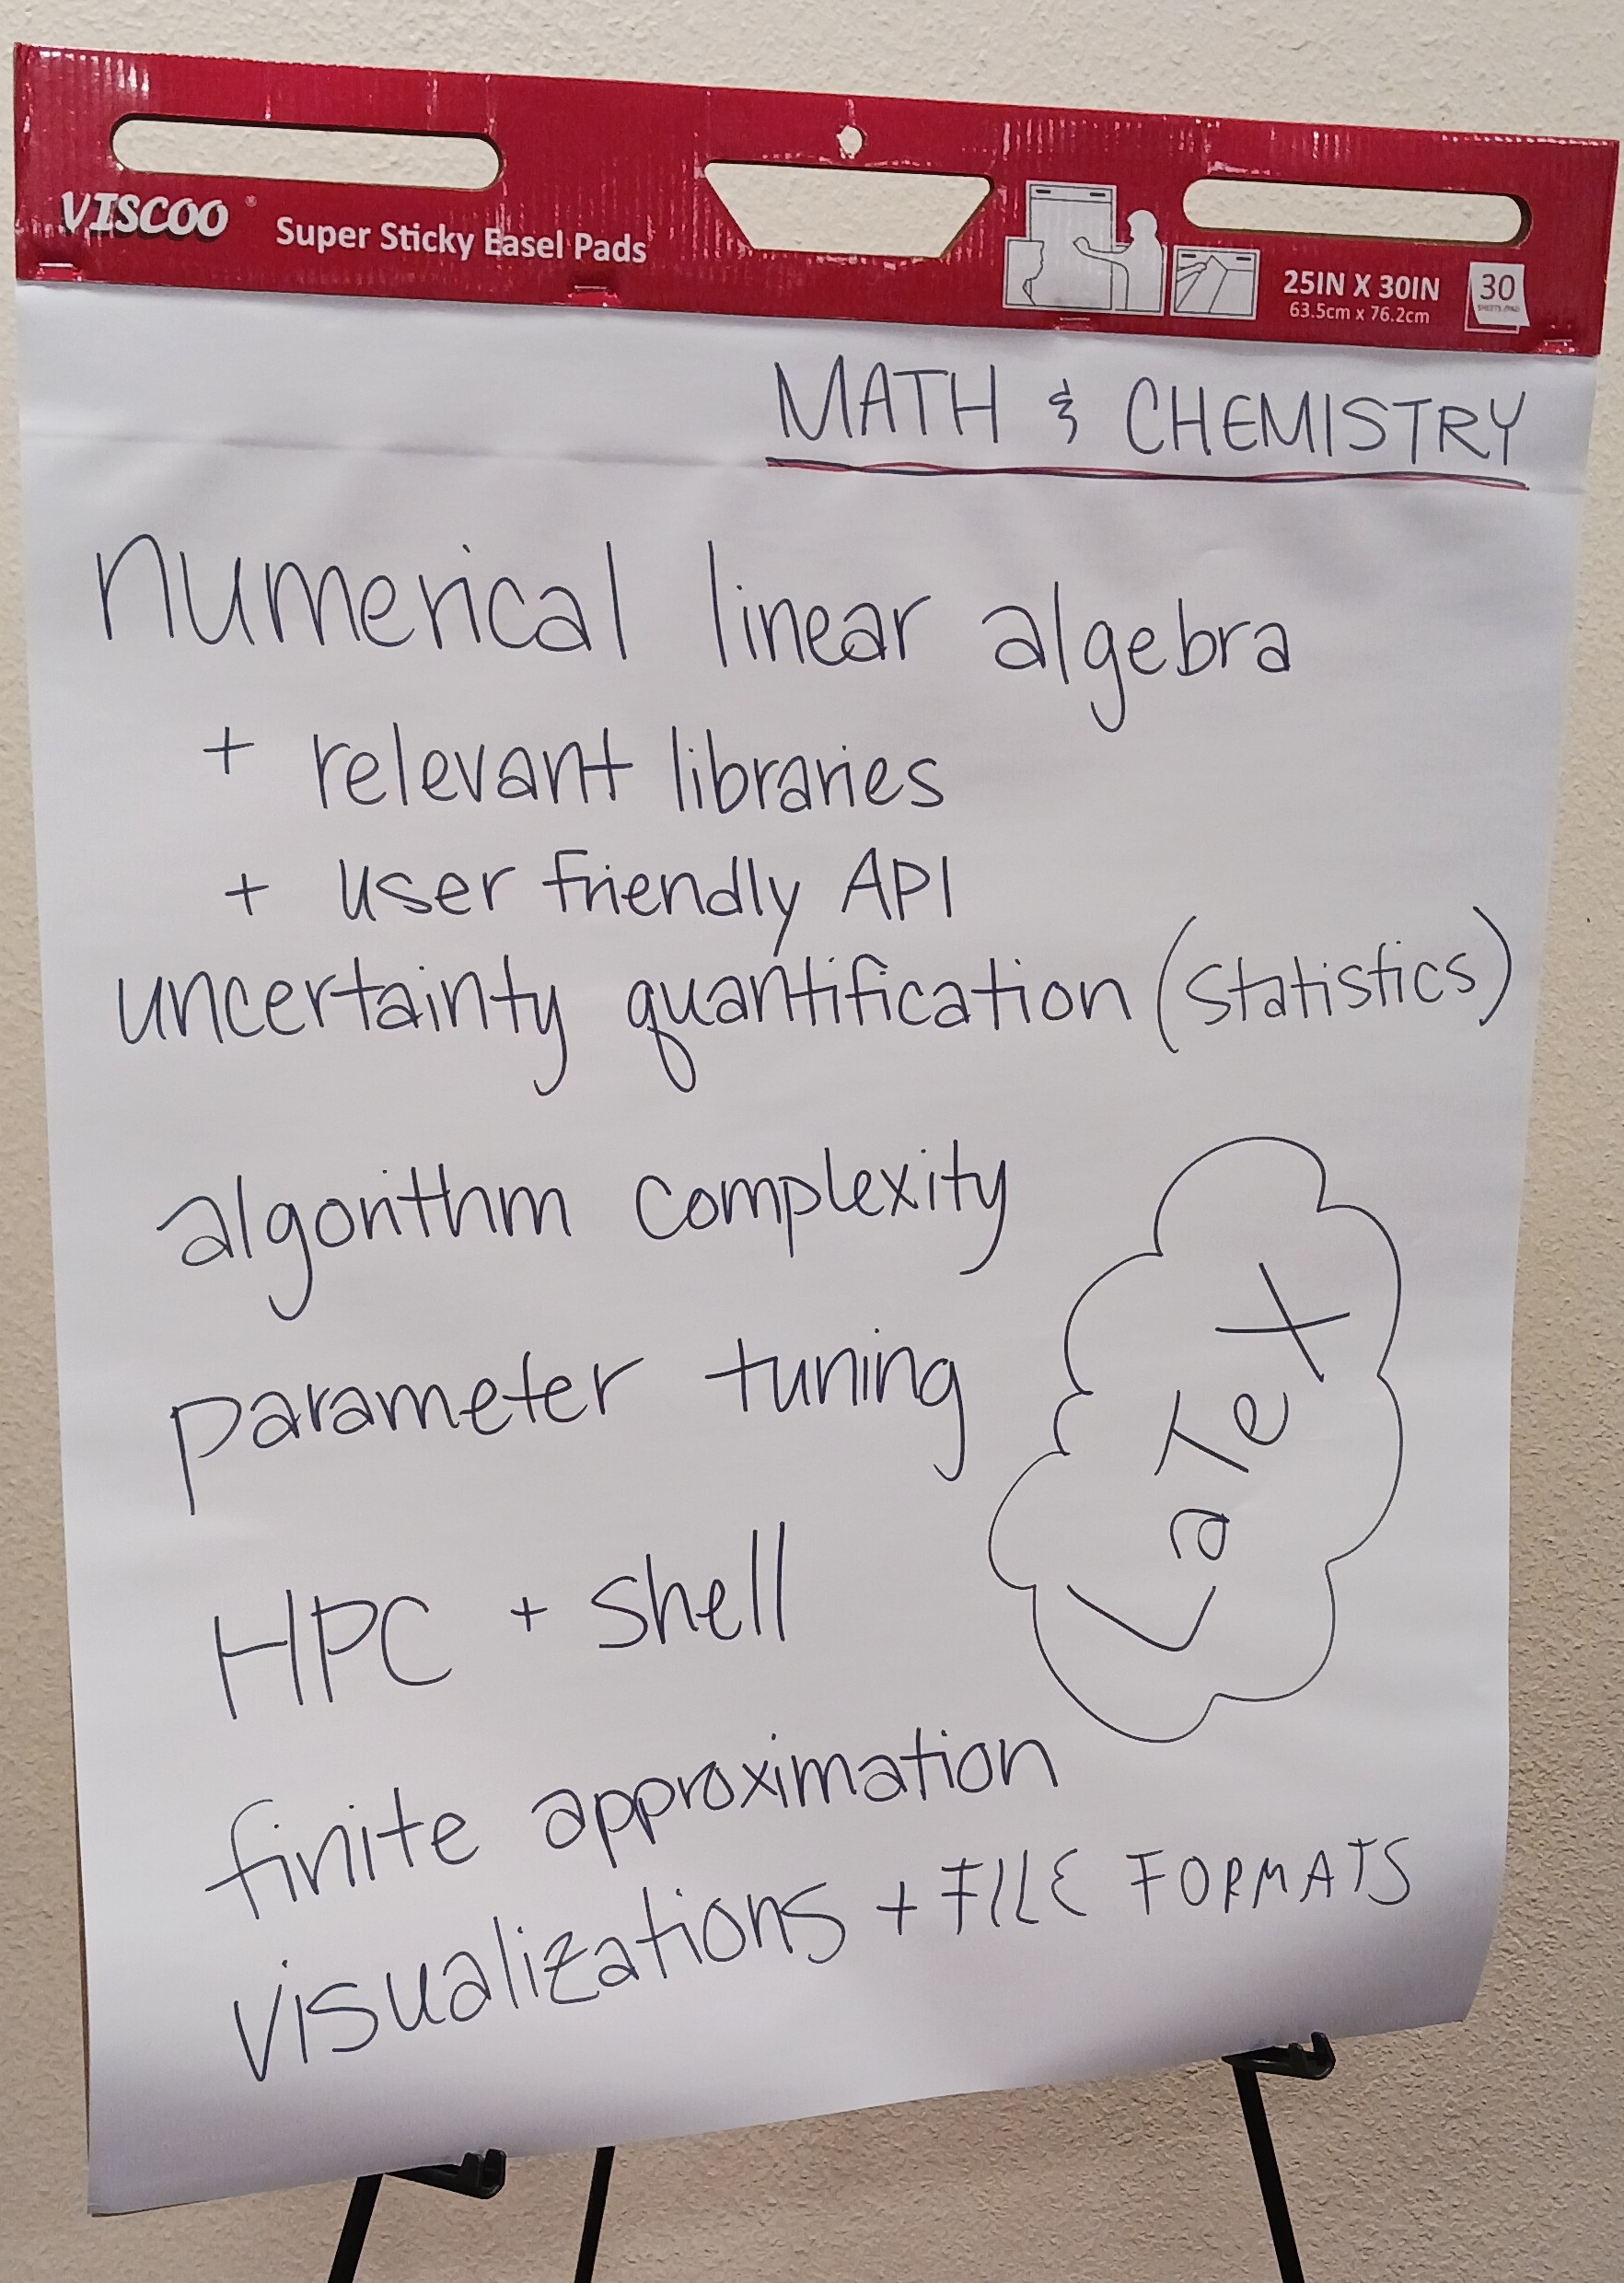 VISCOO® Super Sticky Easel Pads
25IN X 30IN
63.5cm x 76.2cm
30
SHEETS/PAD
MATH & CHEMISTRY
numerical linear algebra
+ relevant libraries
+ user friendly API
uncertainty quantification (statistics)
algorithm complexity
parameter tuning
LaTeX
HPC + shell
finite approximation
visualizations + FILE FORMATS